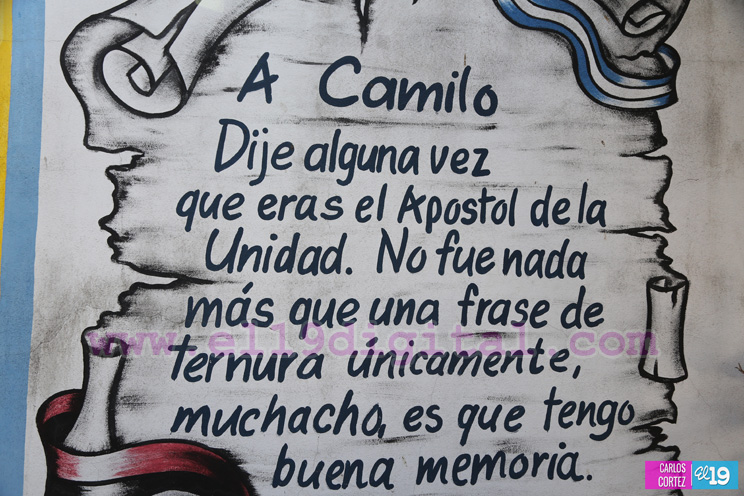 A Camilo
Dije alguna vez
que eras el Apostol de la
Unidad. No fue nada
más que una frase de
www.el19digital.com
ternura únicamente,
muchacho, es que tengo
buena memoria.
CARLOS
CORTEZ
El 19